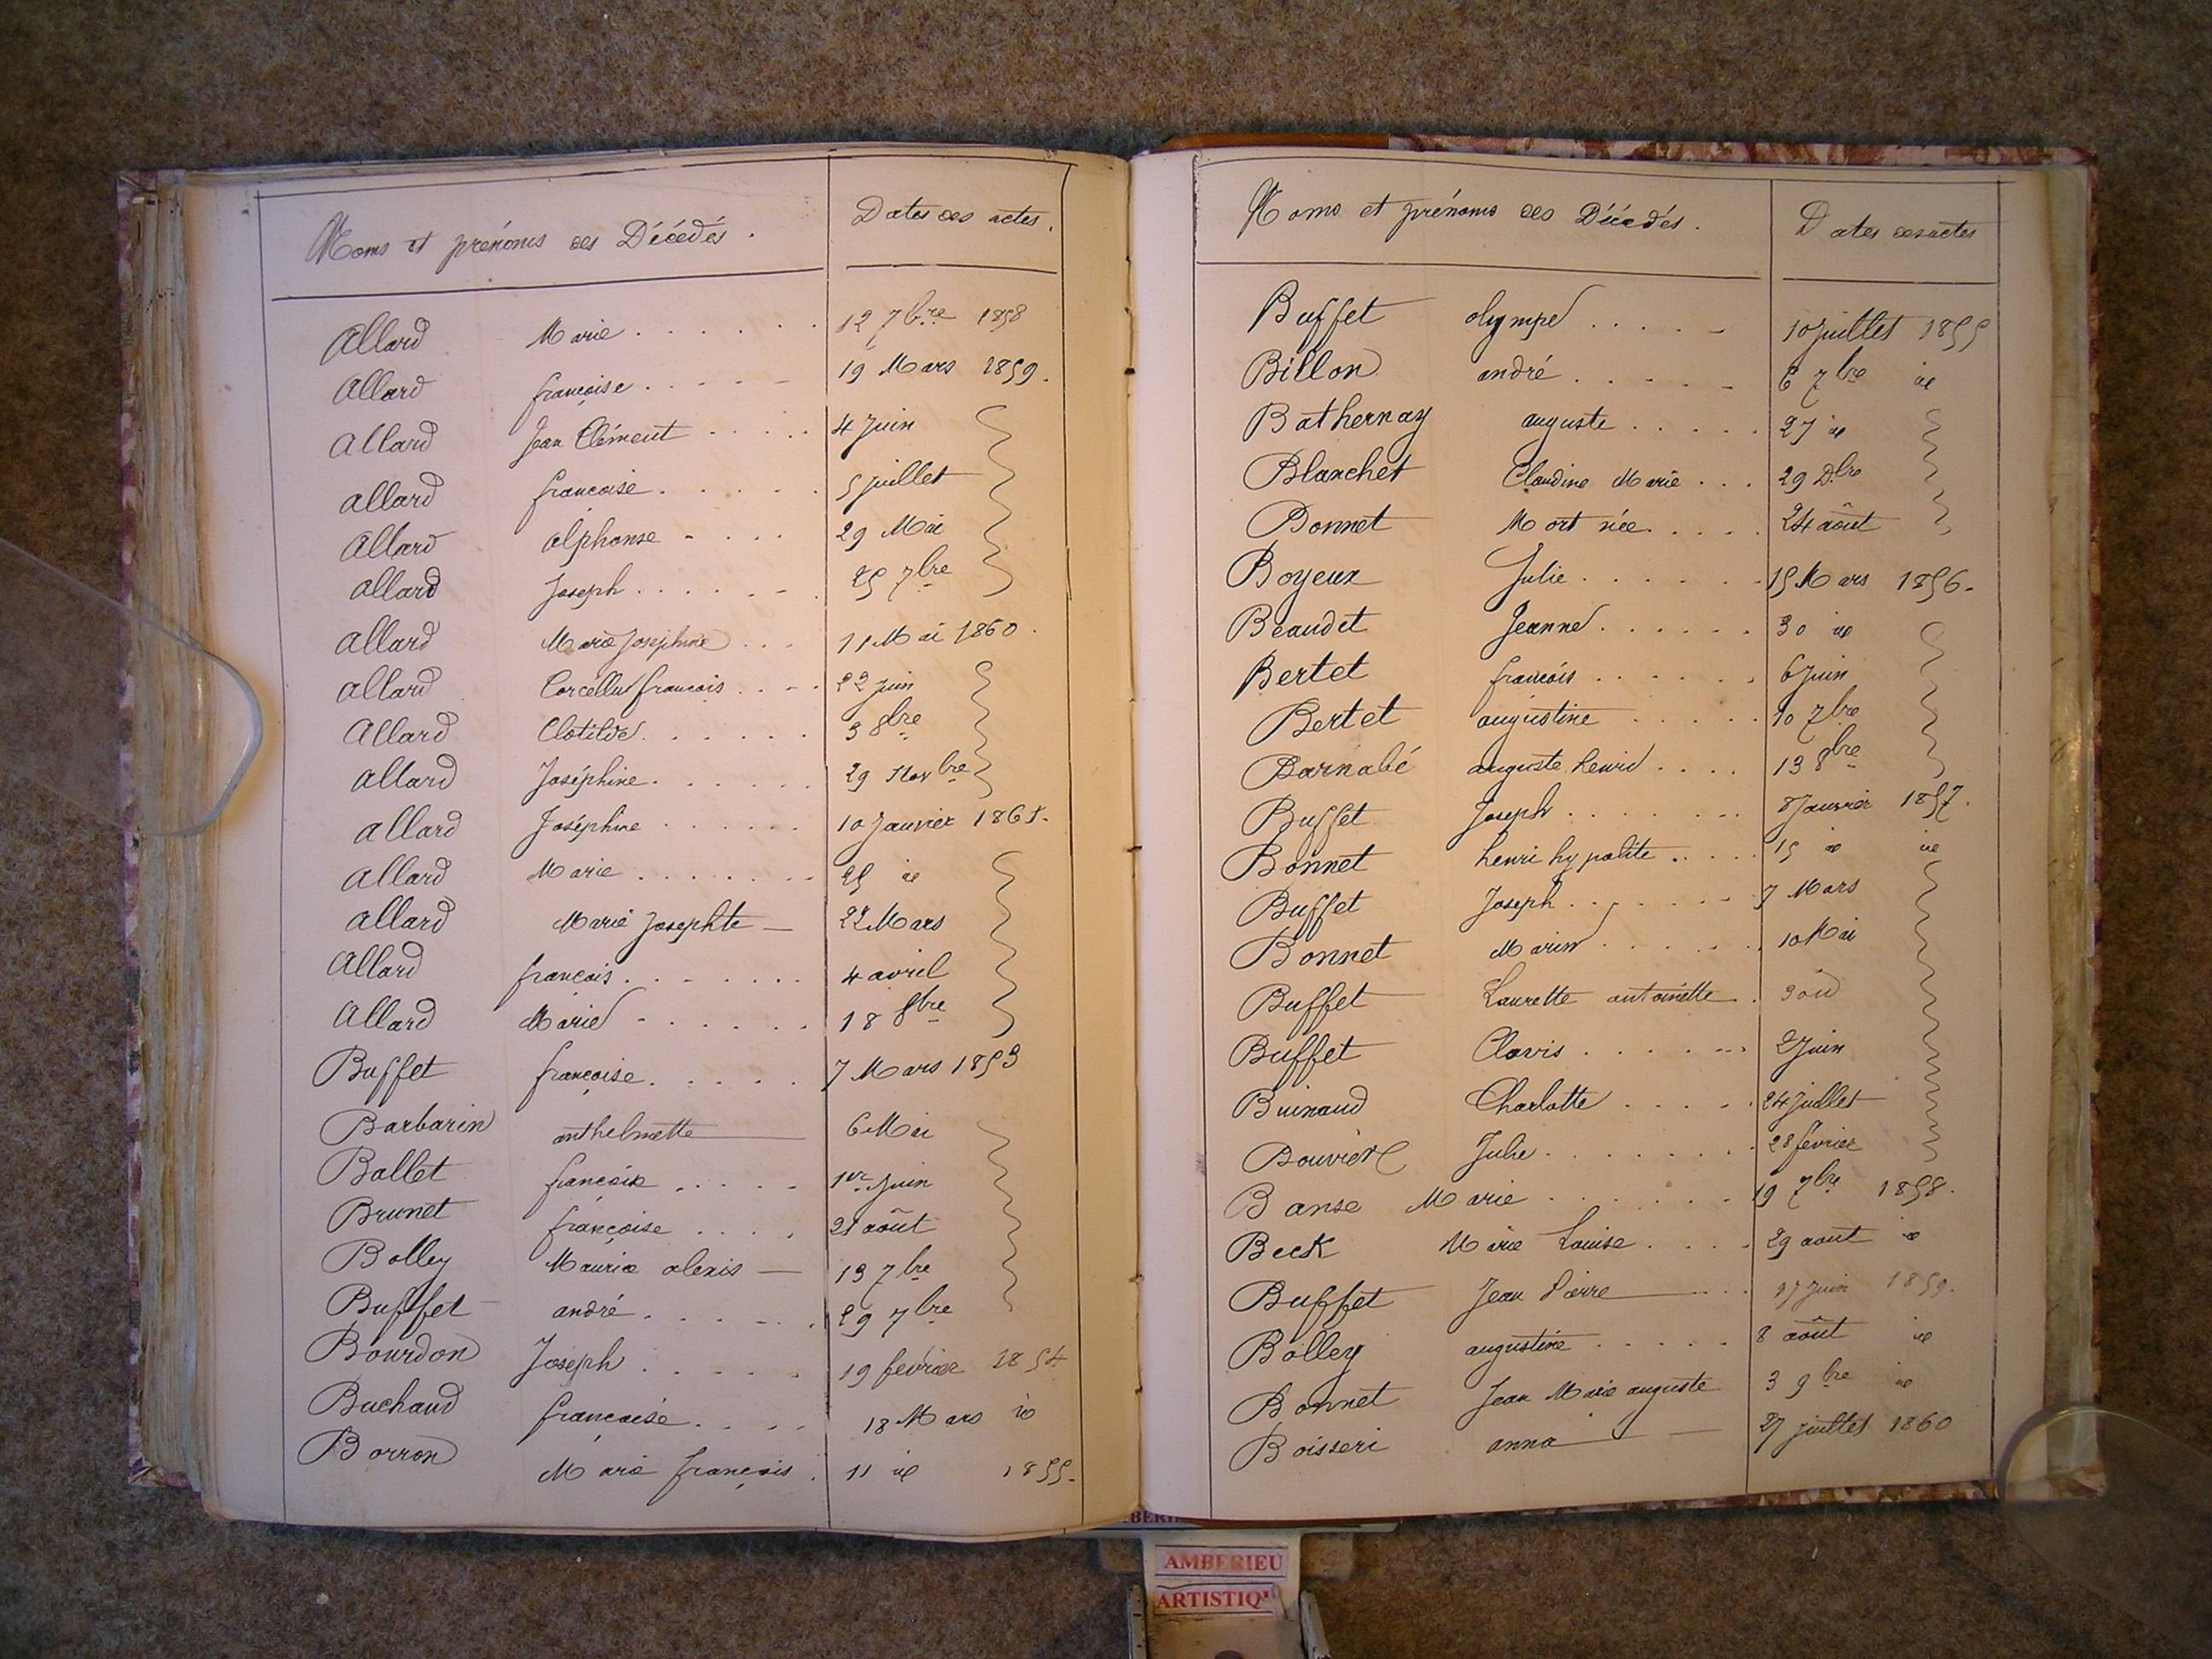 Noms et prénoms des Décédés. Dates des actes.
Allard Marie 12 7bre 1858
Allard françoise 19 Mars 1859.
Allard Jean Clément 4 Juin
Allard françoise 5 juillet
Allard alphonse 29 Mai
Allard Joseph 25 7bre
Allard Marie Josephine 11 Mai 1860.
Allard françois 22 juin
Allard Clotilde 3 8bre
Allard Joséphine 29 Novbre
Allard Joséphine 10 Janvier 1861.
Allard Marie 25 id
Allard Marie Josephte 22 Mars
Allard françois 4 avril
Allard Marie 18 8bre
Buffet françoise 7 Mars 1853
Barbarin anthelmette 6 Mai
Ballet françois 1er Juin
Brunet françoise 21 août
Bolley Maurice alexis 13 7bre
Buffet andré 29 7bre
Bourdon Joseph 19 février 1854
Buchaud françoise 18 Mars id
Borron Marie françois 11 id 1855.
Noms et prénoms des Décédés. Dates des actes
Buffet olympe 10 juillet 1855
Billon andré 6 7bre id
Bathernay auguste 27 id
Blanchet Claudine Marie 29 Dbre
Bonnet Mort née 24 août
Boyeux Julie 15 Mars 1856.
Beaudet Jeanne 30 id
Bertet françois 6 Juin
Bertet augustine 10 7bre
Barnabé auguste henri 13 8bre
Buffet Joseph 8 Janvier 1857.
Bonnet henri hypolite 15 id id
Buffet Joseph 7 Mars
Bonnet Marie 10 Mai
Buffet Laurette antoinette 30 id
Buffet Clovis 2 Juin
Buinaud Charlotte 24 Juillet
Bouvier Julie 28 février
Banse Marie 19 7bre 1858.
Beck Marie Louise 29 aout id
Buffet Jean Pierre 17 Juin 1859.
Bolley augustine 8 août id
Bonnet Jean Marie auguste 3 9bre id
Boisseri anna 27 juillet 1860
AMBERIEU
ARTISTIQ